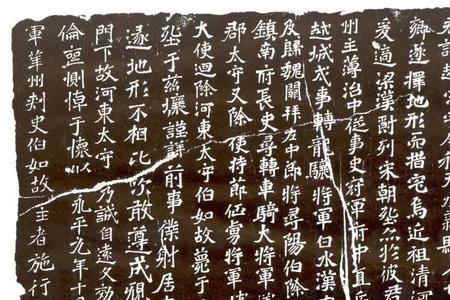 卿遂擇地形而措宅焉近祖清河
爰適梁漢尉列宋朝
州主薄治中從事史府軍府中直
越城戍事轉龍驤將軍白水漢
及歸魏闕拜左中郎將尋陽伯除
鎮南府長史尋轉車騎大將軍
郡太守又除使持節征虜將軍
大使迴除河東太守伯如故薨于
垗于茲壤謹詳前事 射居
遂地形不相比次敢遵成規
門下故河東太守 乃誠自遠久効
倫奄惻悼于懷以 永平元年十
軍華州刺史伯如故主者施行